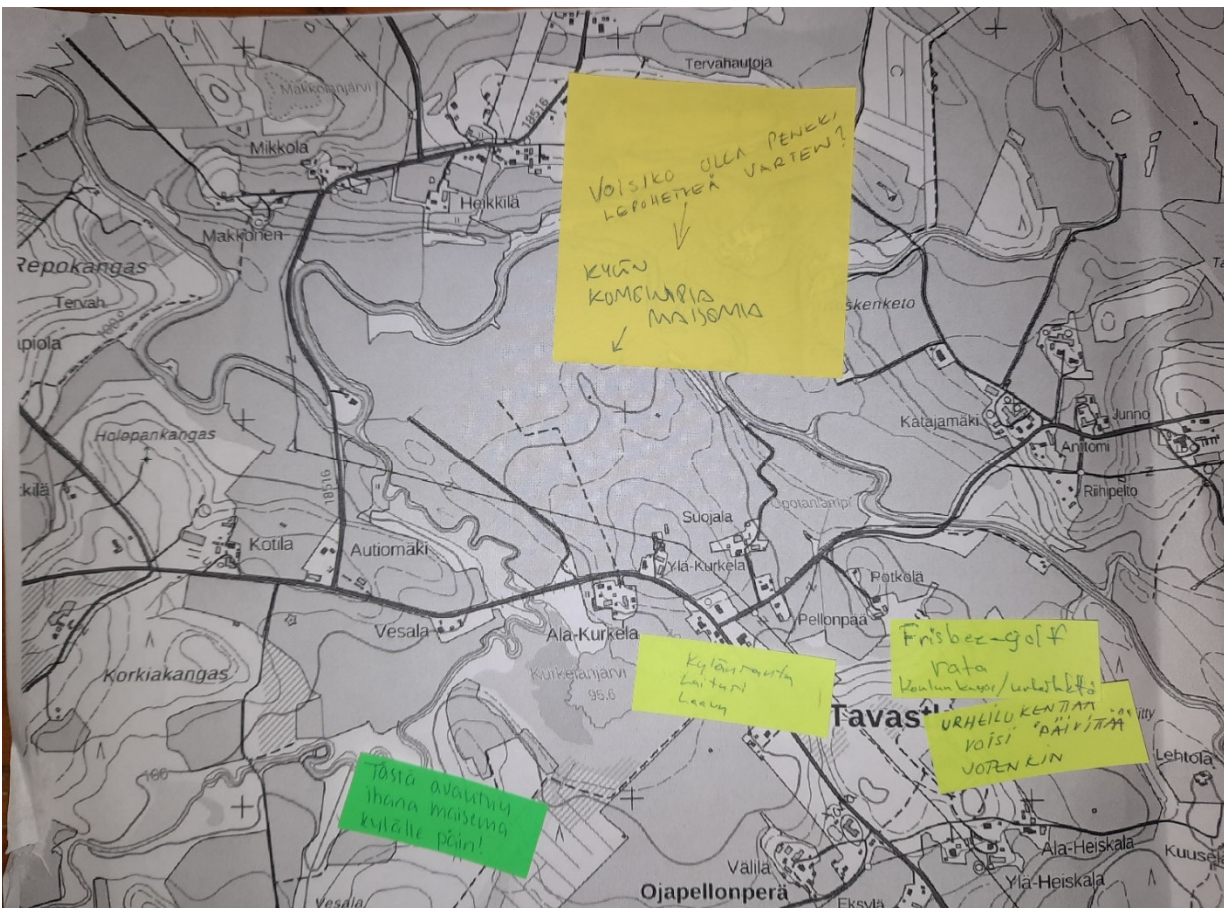 Tervahautoja
Makkolanjärvi
18516
Mikkola
Heikkilä
Makkonen
Repokangas
Tervah
apiola
VOISIKO OLLA PENKKI
LEPOHETKEÄ VARTEN?
KYLÄN
KOMEIMPIA
MAISEMIA
skenketo
Katajamäki
Junno
Anttomi
Riihipelto
Holopankangas
kkilä
18516
Kotila
Autiomäki
Suojala
Opotanlampi
Ylä-Kurkela
Potkola
Pellonpää
Vesala
Ala-Kurkela
Korkiakangas
Kurkelanjärvi
95.6
Kylänranta
Laituri
Laavu
Frisbee-golf
rata
Tavast
URHEILUKENTTÄÄ
VOISI "PÄIVITTÄÄ"
JOTENKIN
itty
Lehtola
100
Tästä avautuu
ihana maisema
kylälle päin!
Välilä
Ojapellonperä
Eksylä
Ala-Heiskala
Ylä-Heiskala
Kuusel
Vesala